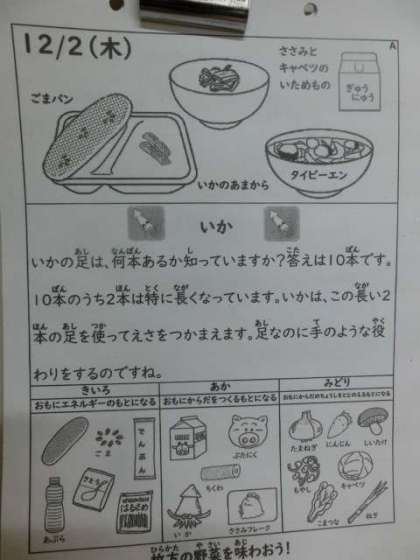 12/2(木)
A
ささみと
キャベツの
いためもの
ぎゅう
にゅう
ごまパン
いかのあまから
タイピーエン
いか
いかの足は、何本あるか知っていますか?答えは10本です。
10本のうち2本は特に長くなっています。いかは、この長い2
本の足を使ってえさをつかまえます。足なのに手のような役
わりをするのですね。
きいろ
おもにエネルギーのもとになる
あか
おもにからだをつくるもとになる
みどり
おもにからだのちょうしをととのえるもとになる
ごま
でんぷん
さとう
あぶら
はるさめ
ぶたにく
ちくわ
いか
ささみフレーク
たまねぎ
にんじん
しいたけ
もやし
キャベツ
こまつな
ねぎ
枚方の野菜を味わおう!